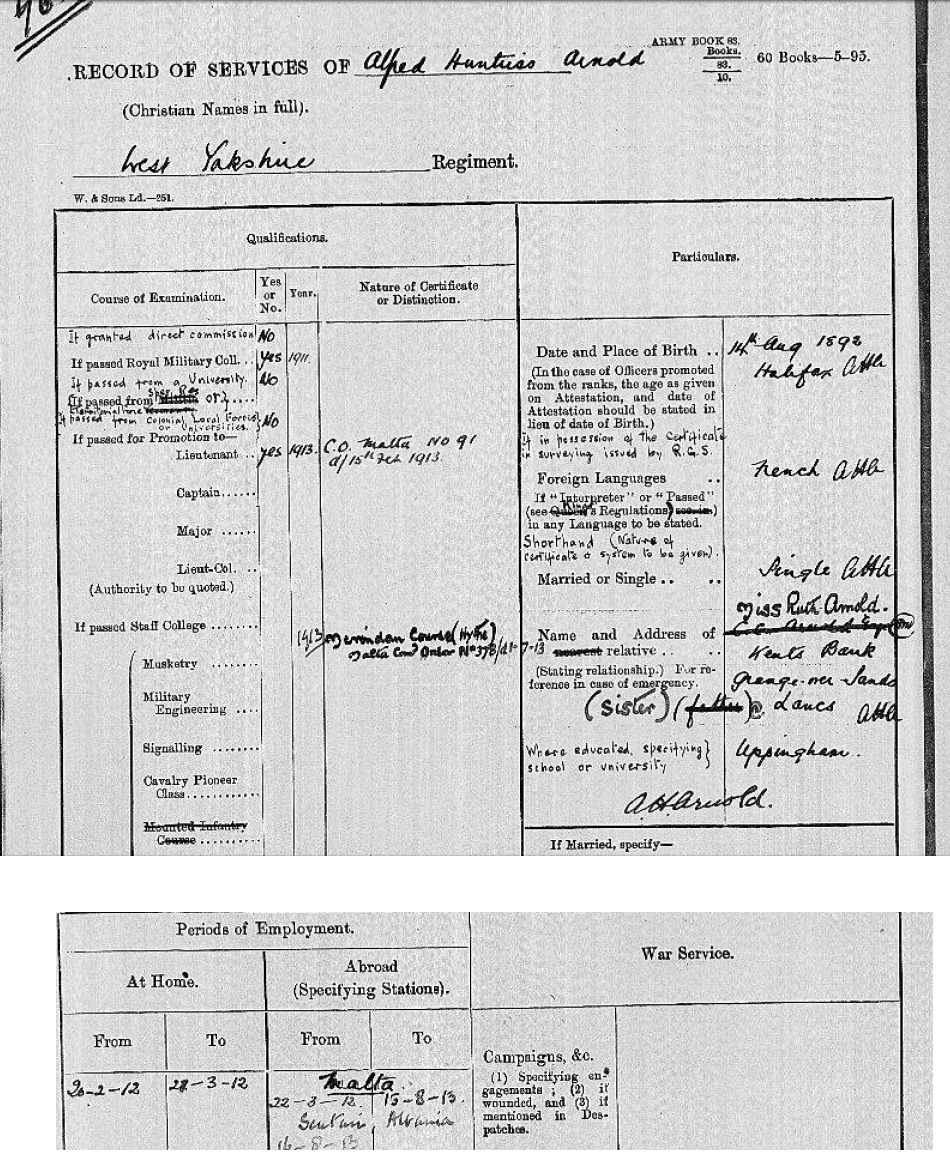 RECORD OF SERVICES OF Alfred Huntriss Arnold
ARMY BOOK 83.
Books.
83.
10.
60 Books—5–95.
(Christian Names in full).
West Yorkshire Regiment.
W. & Sons Ld.—251.
Qualifications.
Course of Examination.
Yes or No.
Year.
Nature of Certificate or Distinction.
If granted direct commission No
If passed Royal Military Coll. .. Yes 1911.
If passed from a University. No
If passed from
Spec. Res
or }....
If passed from Colonial Local Forces
or Universities. No
If passed for Promotion to—
Lieutenant .. yes 1913. C.O. Malta No 91
d/15th Feb 1913.
Captain......
Major ......
Lieut-Col. ..
(Authority to be quoted.)
If passed Staff College ........
1913 Course (Hythe)
Malta Comd Order No 373/d1-7-13.
Musketry ......
Military
Engineering ....
Signalling ........
Cavalry Pioneer
Class...........
Mounted Infantry
Course ..........
Particulars.
Date and Place of Birth .. 14th Aug 1892
Halifax AHA
(In the case of Officers promoted
from the ranks, the age as given
on Attestation, and date of
Attestation should be stated in
lieu of date of Birth.)
If in possession of the Certificate
in surveying issued by R.G.S.
Foreign Languages .. French AHA
If "Interpreter" or "Passed"
(see Queen's King's Regulations)
in any Language to be stated.
Shorthand (Nature of
certificate & system to be given).
Married or Single .. .. Single AHA
Miss Ruth Arnold.
E.C. Arnold Esq
Name and Address of
nearest relative .. .. Kents Bank
(Stating relationship.) For re-
ference in case of emergency. Grange-over-Sands
(sister) (father) Lancs AHA
Where educated, specifying }
school or university Uppingham.
A.H. Arnold.
If Married, specify—
Periods of Employment.
At Home.
Abroad
(Specifying Stations).
From To From To
20-2-12 21-3-12 Malta.
22-3-12 15-8-13.
Scutari, Albania
16-8-13
War Service.
Campaigns, &c.
(1) Specifying en-
gagements; (2) if
wounded, and (3) if
mentioned in Des-
patches.